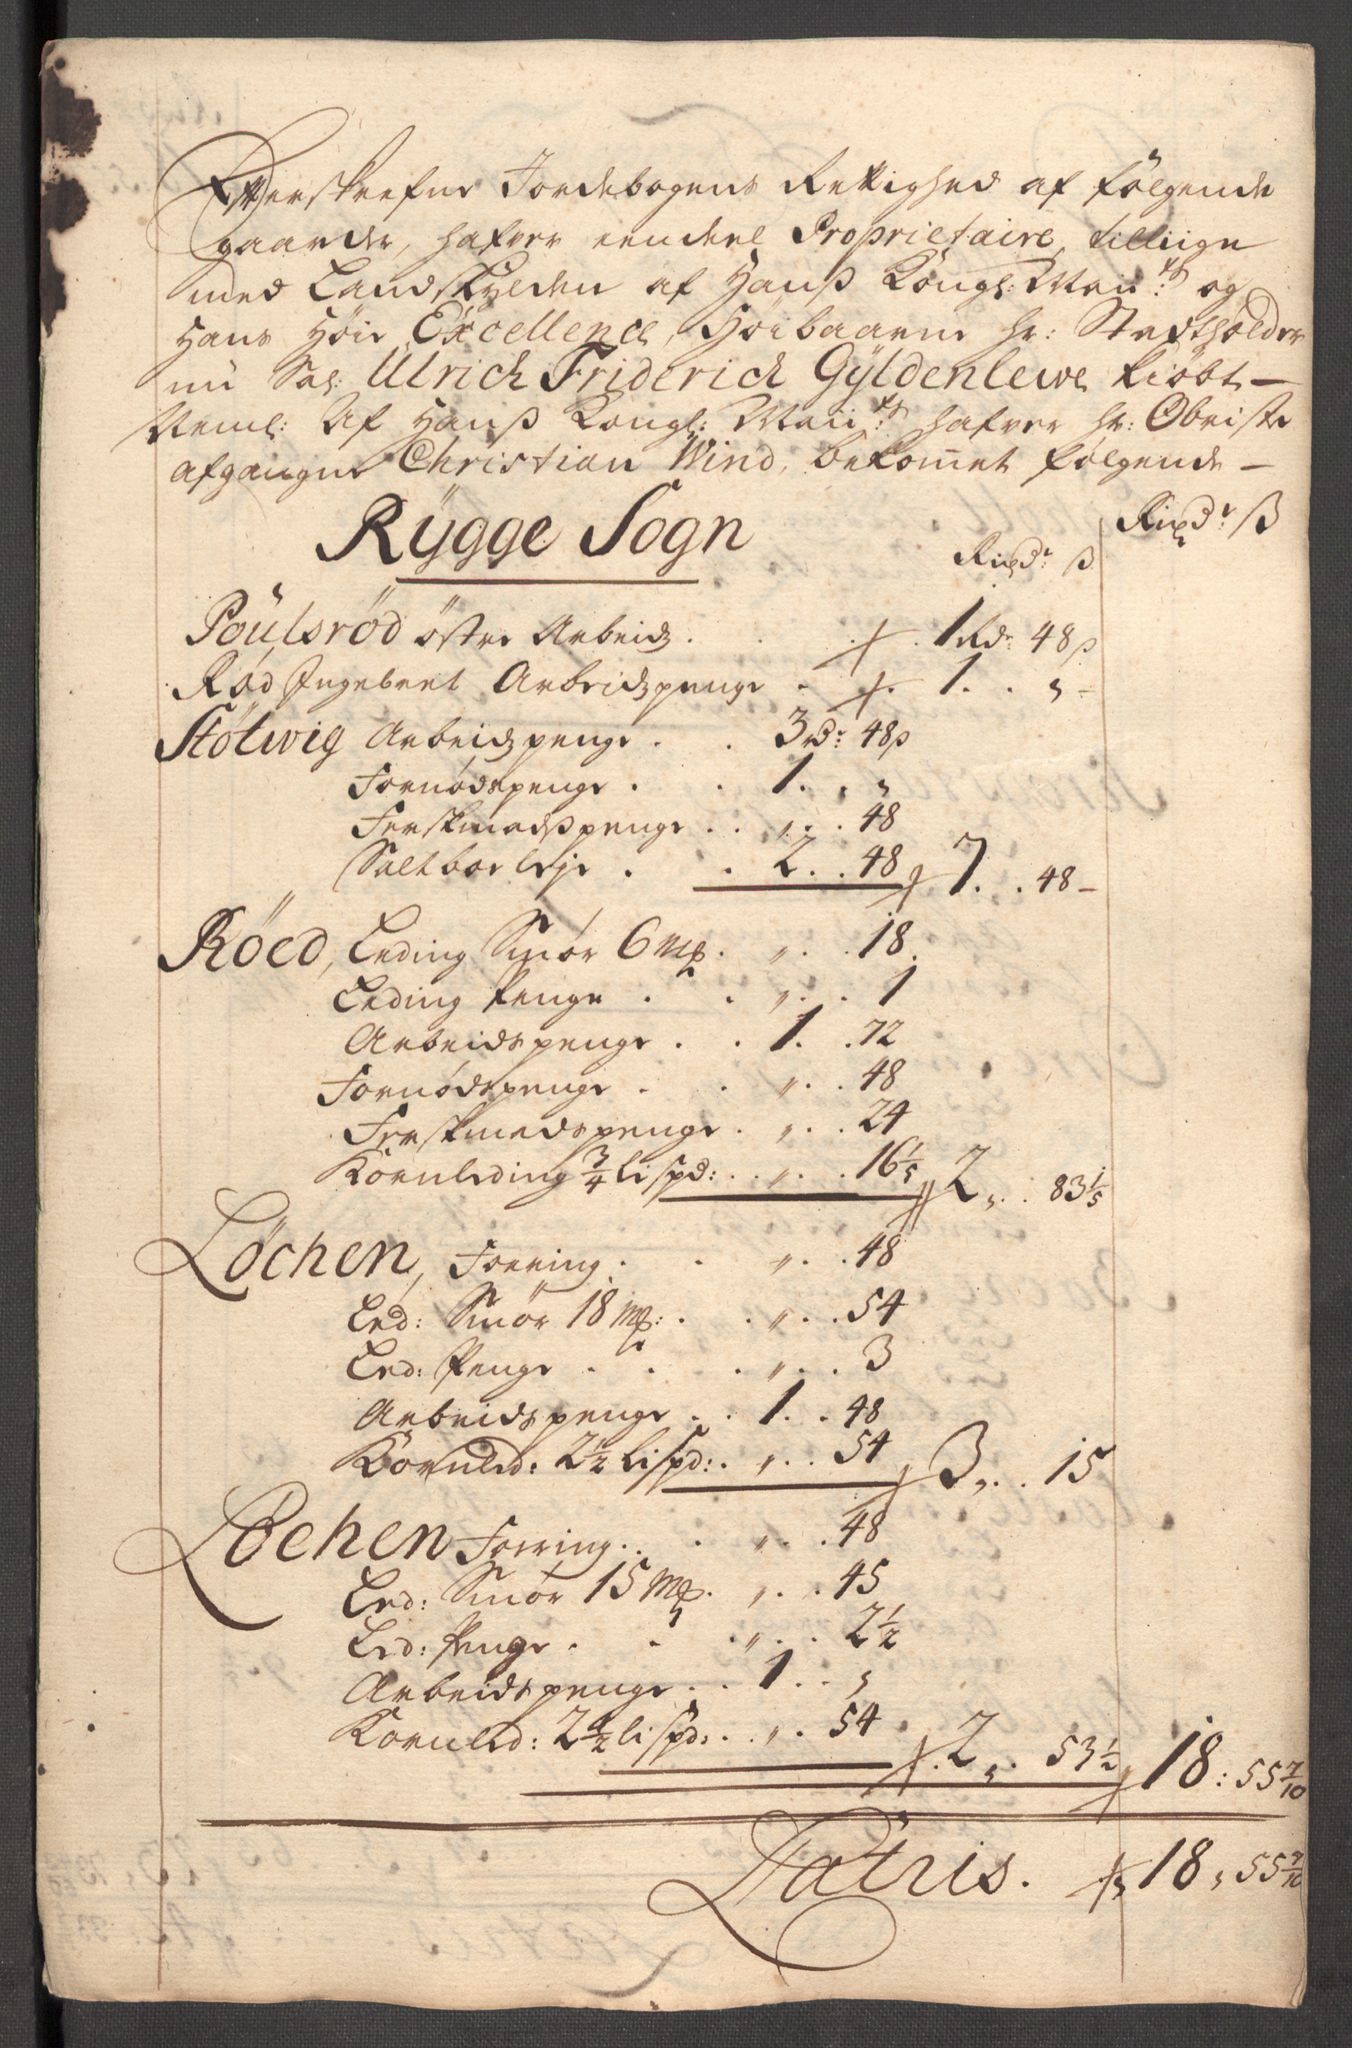 Efterskrefne Jordebogens Rettighed af følgende
gaarde, hafver eendeel Proprietaire, tilliige
med Landskÿlden af Hanß Kongl: Maÿ:ts og
Hans Höie Excellence, Høibaarne hr: Stadtholder
nu Sal: Ulrich Friderich Gÿldenlewe kiöbt –
Neml: Af Hanß Kongl: Maÿ:ts hafver hr: Obriste
afgangne Christian Wind, bekomet følgende –
Rÿgge Sogn
Rixdr ß
Rixdr: ß
Poülsröd östre Arbeidz . . . 1 Rd: 48 ß
Rød Ingebret Arbeidzpenge . . 1 . . „ –
Stötwig Arbeidzpenge . . 3 rd: 48 ß
Fornödspenge . . 1 . . „
Ferskmadßpenge . . „ . . 48
Saltbørleje . . 2 . . 48 7 . . 48 –
Röed, Leding Smör 6 mk . „ . . 18
Leding Penge . . „ . . 1
Arbeidspenge . . 1 . . 72
Fornödspenge . . „ . . 48
Ferskmadspenge . „ . . 24
Kornleding 3/4 lispd: . . „ . . 16 1/5 2 „ . . 83 1/5
Löchen, Foering . . „ . . 48
Led: Smör 18 mk: . . „ . . 54
Led: Penge . . . „ . . 3
Arbeidspenge . . 1 . . 48
Kornled: 2 1/2 lispd: . „ . . 54 3 „ . . 15
Löchen Foering . . . „ . . 48
Led: Smör 15 mk . „ . . 45
Led: Penge . . . „ . . 2 1/2
Arbeidspenge . . 1 . . „
Kornled: 2 1/2 lispd: . . „ . 54 . 2 „ . 53 1/2 18 : 55 7/10
Latris . 18 „ 55 7/10